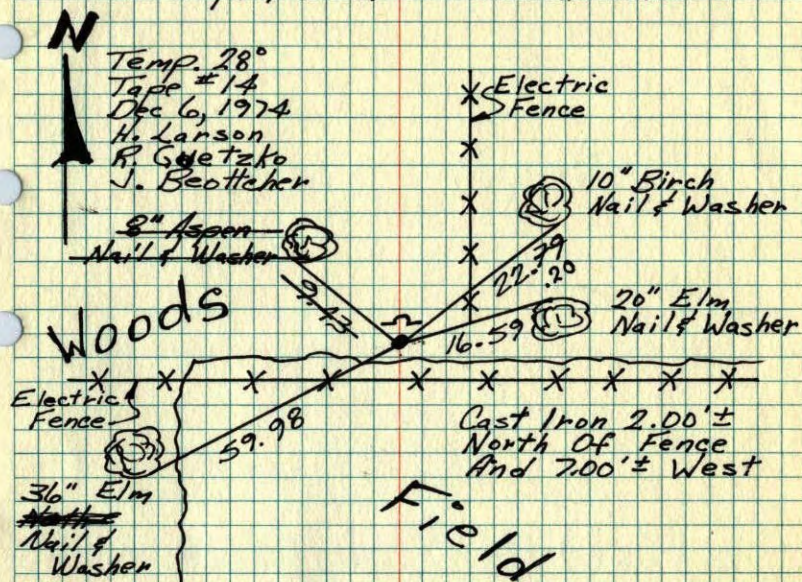 N
Temp. 28°
Tape #14
Dec 6, 1974
H. Larson
R. Goetzko
J. Beottcher
Electric
Fence
10" Birch
Nail & Washer
8" Aspen
Nail & Washer
22.79
.20
9.43
20" Elm
Nail & Washer
16.59
Woods
Electric
Fence
59.98
Cast Iron 2.00'±
North Of Fence
And 7.00'± West
36" Elm
Nail &
Washer
Field